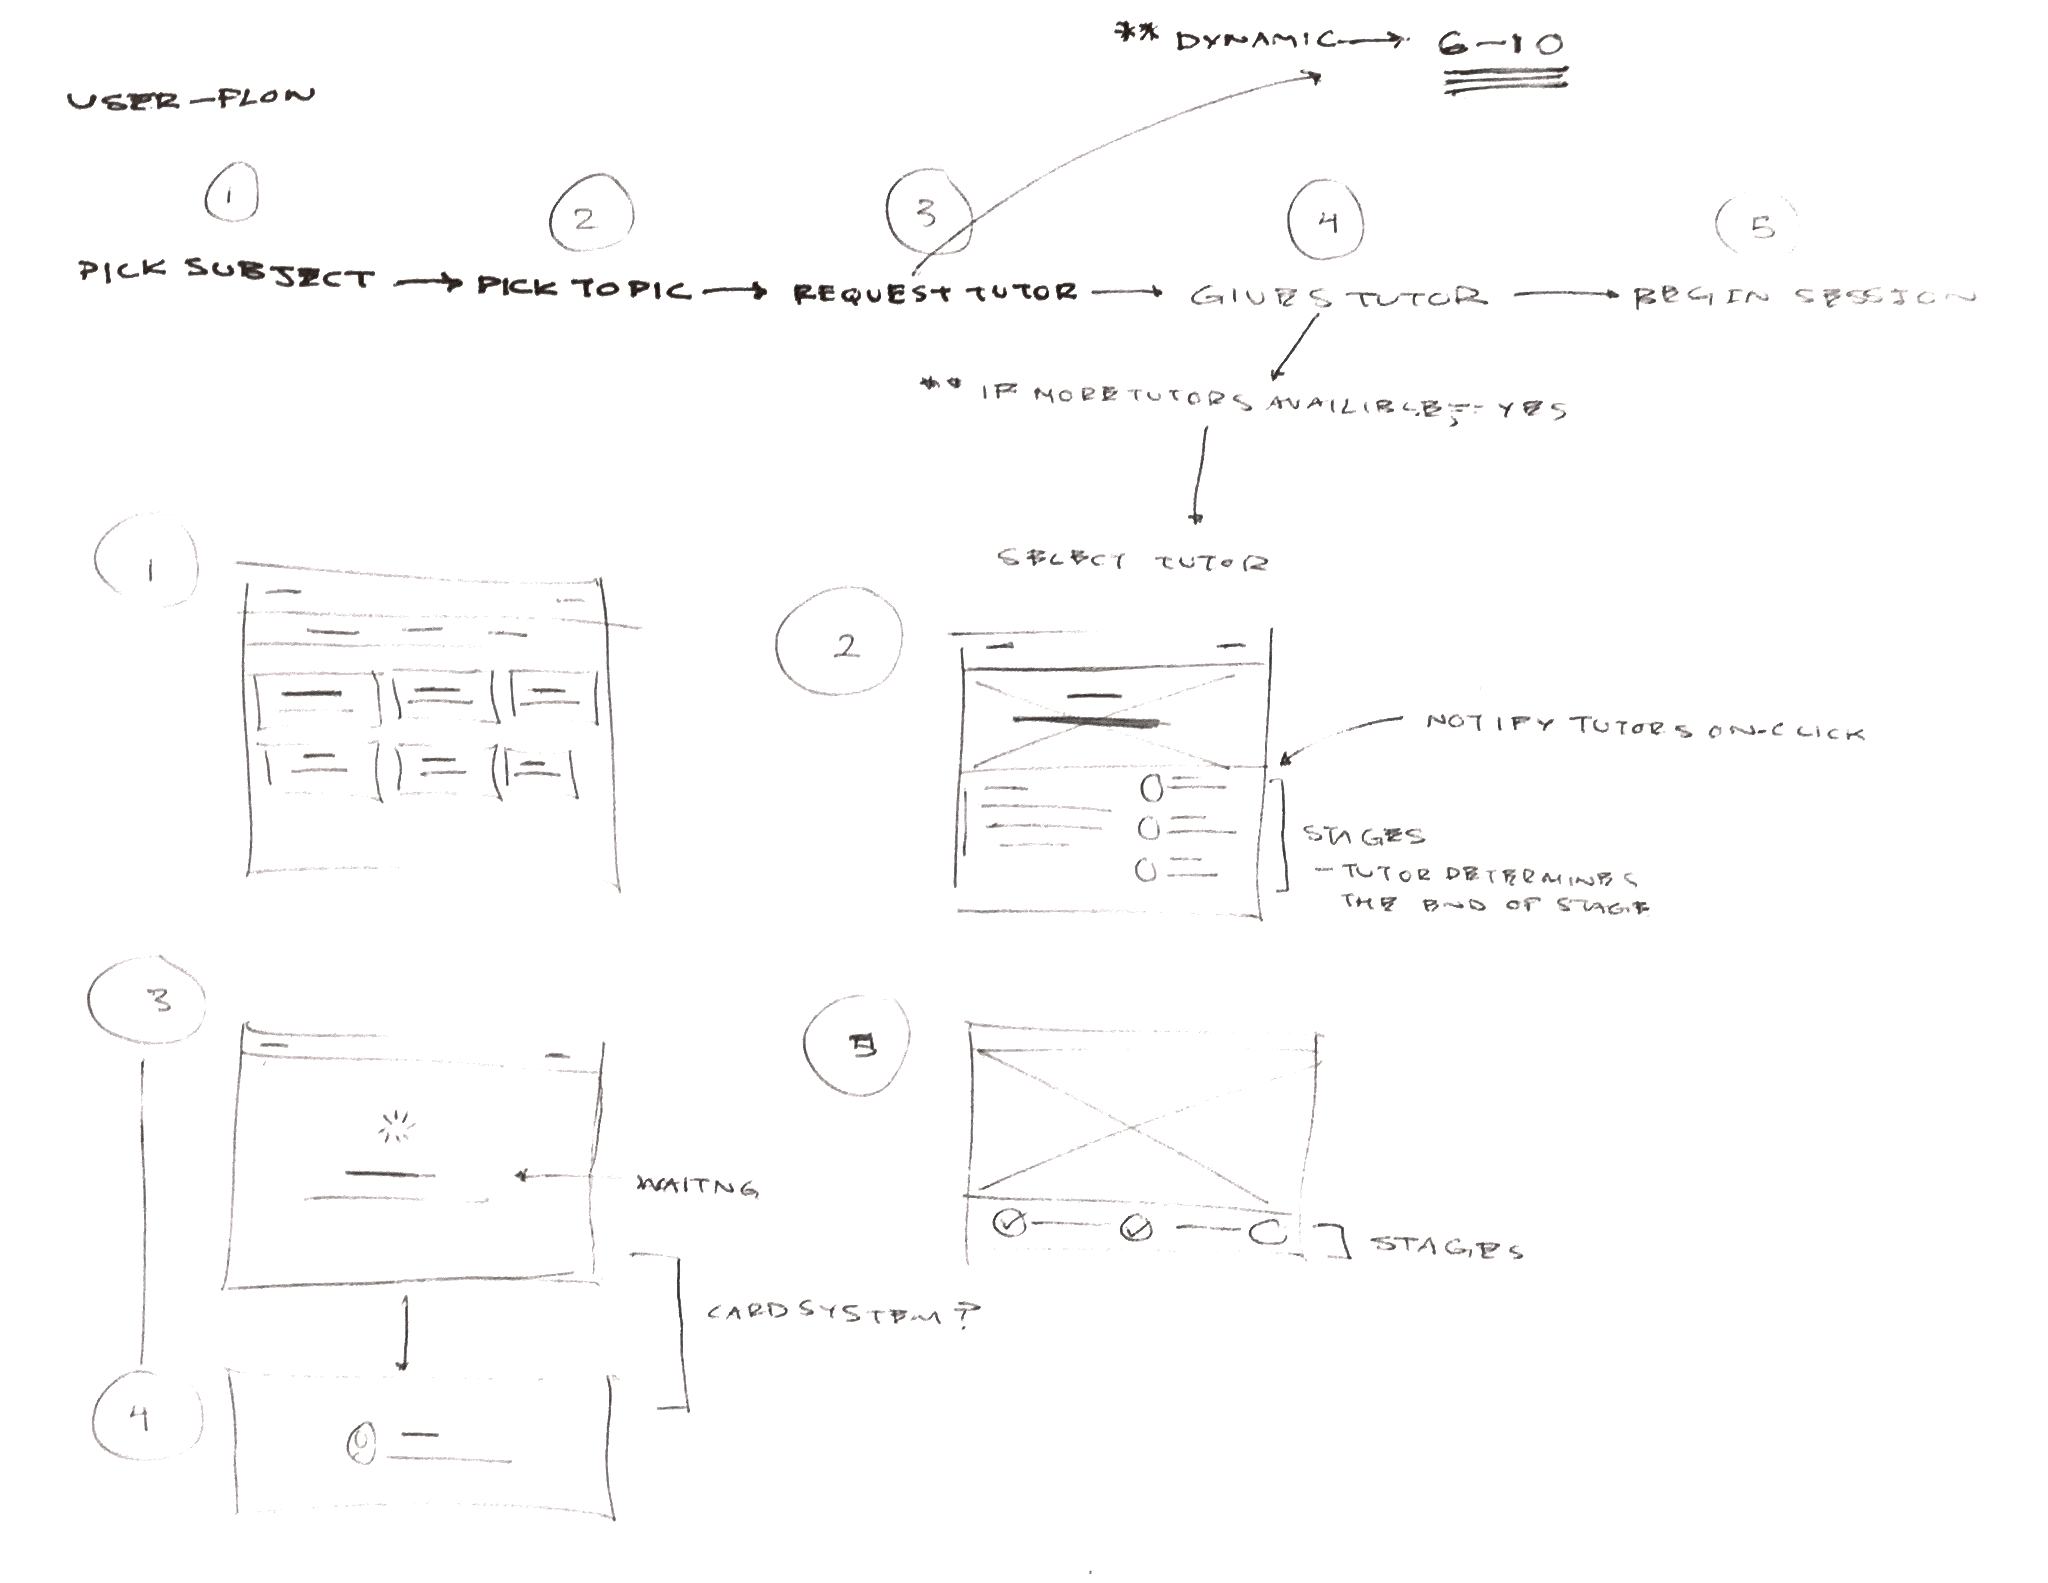 ** DYNAMIC → 6-10
USER-FLOW
1 2 3 4 5
PICK SUBJECT → PICK TOPIC → REQUEST TUTOR → GIVES TUTOR → BEGIN SESSION
** IF MORE TUTORS AVAILIBLE; - YES
SELECT TUTOR
1
2
NOTIFY TUTORS ON-CLICK
STAGES
- TUTOR DETERMINES
THE END OF STAGE
3
WAITNG
CARD SYSTEM?
4
5
STAGES